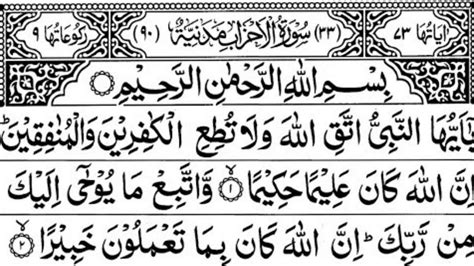 اٰيَاتُهَا ٧٣ (٣٣) سُوْرَةُ الْاَحْزَابِ مَدَنِيَّةٌ (٩٠) رُكُوْعَاتُهَا ٩
بِسْمِ اللّٰهِ الرَّحْمٰنِ الرَّحِيْمِ
يٰۤاَيُّهَا النَّبِيُّ اتَّقِ اللّٰهَ وَلَا تُطِعِ الْكٰفِرِيْنَ وَالْمُنٰفِقِيْنَ ؕ
اِنَّ اللّٰهَ كَانَ عَلِيْمًا حَكِيْمًا ۙ﴿١﴾ وَّاتَّبِعْ مَا يُوْحٰۤى اِلَيْكَ
مِنْ رَّبِّكَ ؕ اِنَّ اللّٰهَ كَانَ بِمَا تَعْمَلُوْنَ خَبِيْرًا ۙ﴿٢﴾